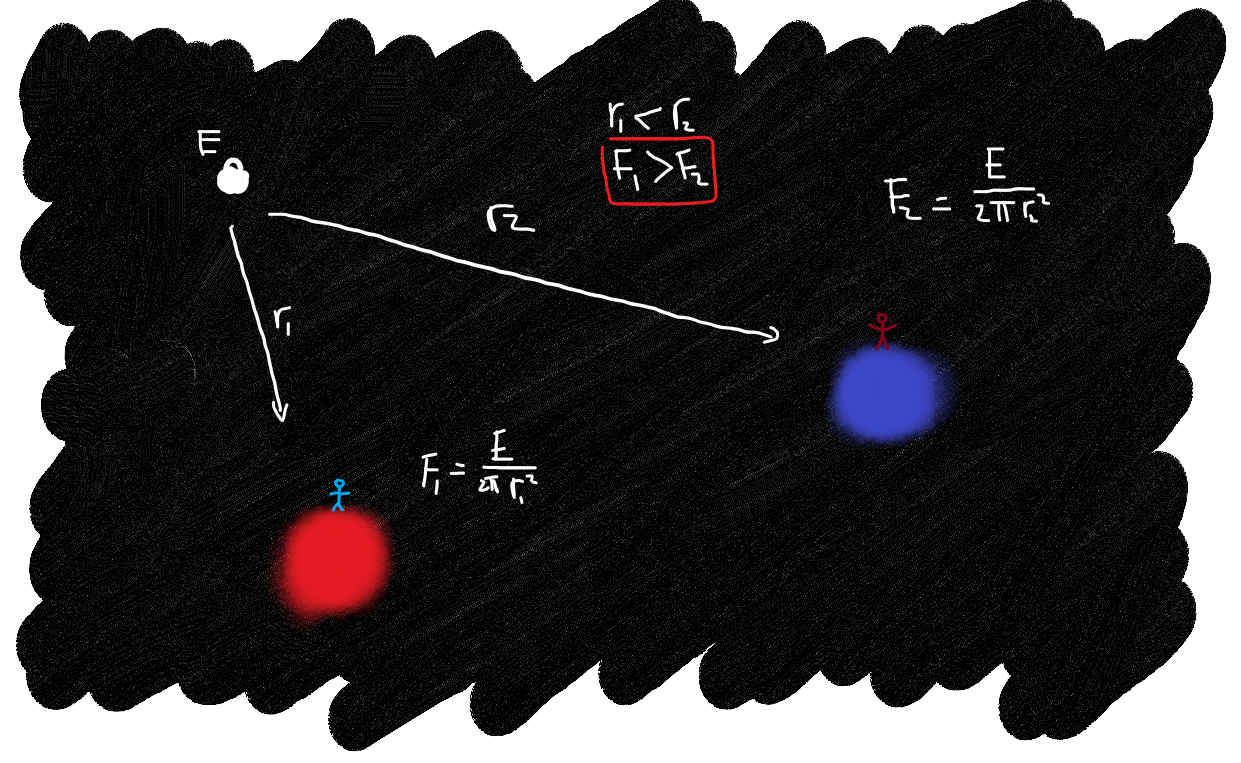 E
r₁ < r₂
F₁ > F₂
F₂ = E / 2π r₂²
r₂
r₁
F₁ = E / 2π r₁²